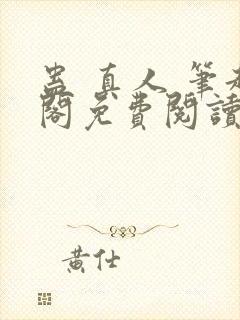 蛊真人 筆趣
閣免費閱讀
黃仕